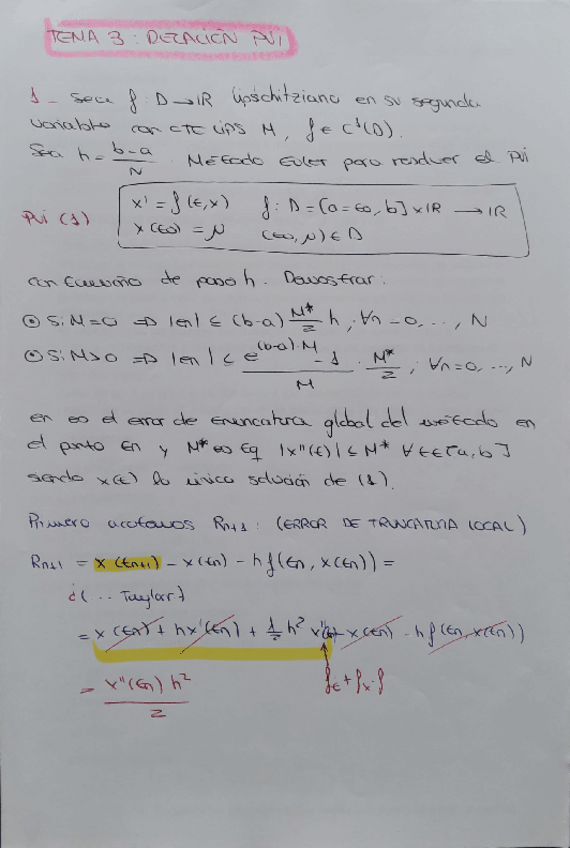 TEMA 3: RELACIÓN PVI
1 - Sea f: D → IR lipschitziana en su segunda
variable con CTE LIPS M, f ∈ C¹(D).
Sea h = (b-a)/N. Método Euler para resolver el PVI
PVI (1) x' = f(t,x) f: D = [a = t0, b] x IR → IR
x(t0) = μ (t0, μ) ∈ D
con tamaño de paso h. Demostrar:
⊙ Si M=0 ⇒ |en| ≤ (b-a) M*/2 h ; ∀n = 0, ..., N
⊙ Si M>0 ⇒ |en| ≤ (e^((b-a)·M) - 1)/M · M*/2 ; ∀n=0, ..., N
en es el error de truncatura global del método en
el punto tn y M* es tq |x''(t)| ≤ M* ∀t∈[a,b]
siendo x(t) la única solución de (1).
Primero acotamos Rn+1: (ERROR DE TRUNCATURA LOCAL)
Rn+1 = x(tn+1) - x(tn) - h f(tn, x(tn)) =
(.. Taylor)
= x(tn) + h x'(tn) + 1/2 h² x''(tn) - x(tn) - h f(tn, x(tn))
= x''(tn) h² / 2
ft + fx·f